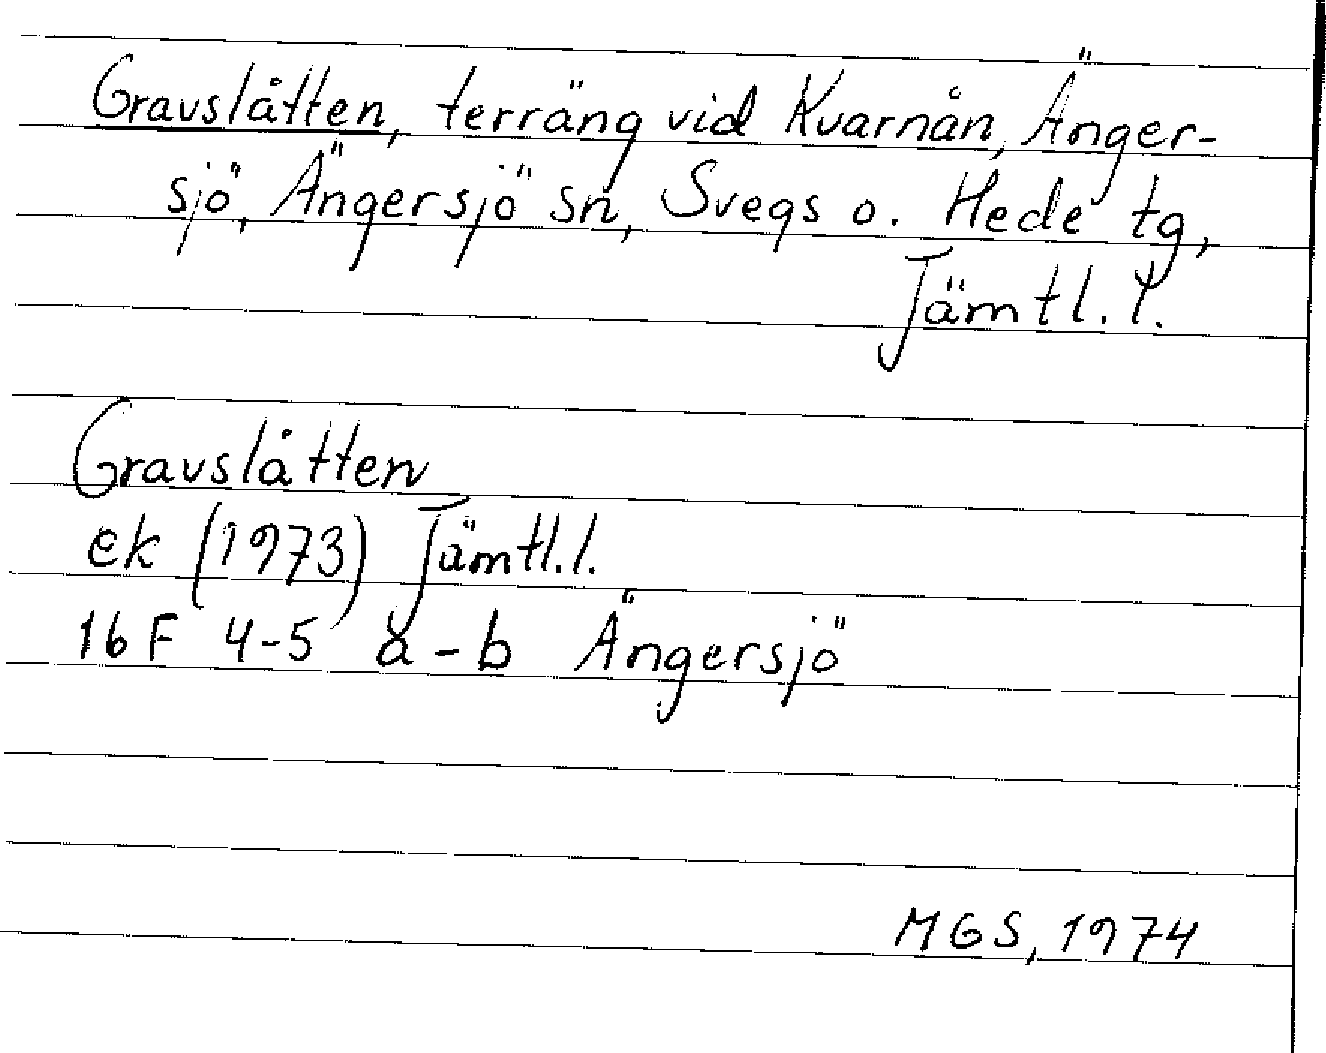 Gravslåtten, terräng vid Kvarnån, Änger-
sjö, Ängersjö sn, Svegs o. Hede tg,
Jämtl. l.
Gravslåtten
ek (1973) Jämtl. l.
16 F 4-5 a-b Ängersjö
MGS, 1974